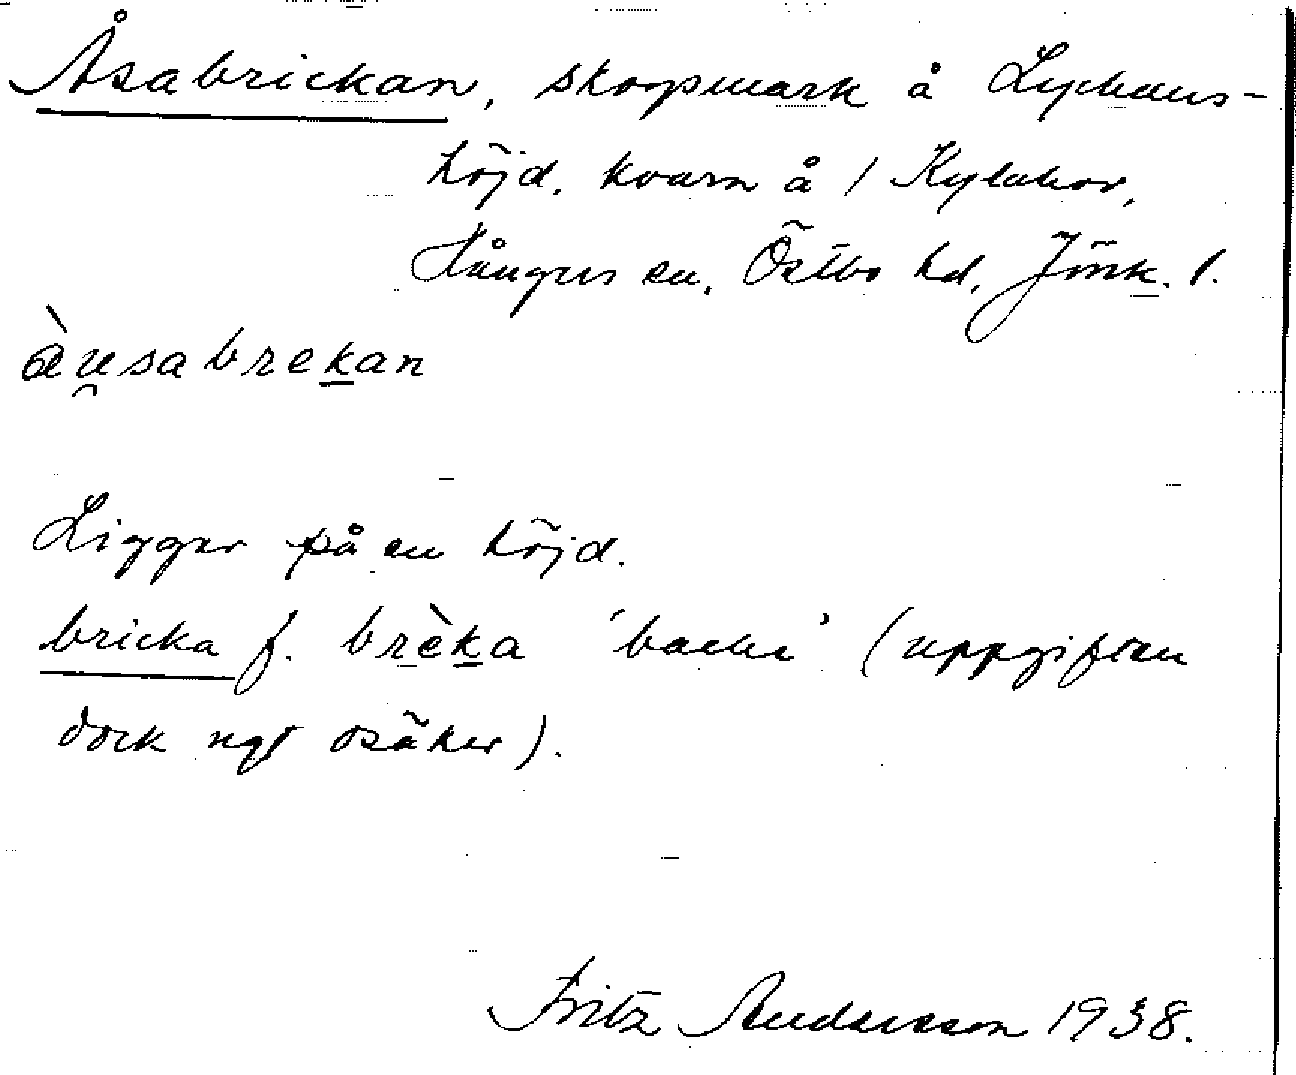 Åsabrickan, skogsmark å Lyckans-
höjd, kvarn å 1 Kylahov,
Kångus sn, Östbo hd, Jönk. l.
àu̯sabrekan
Ligger på en höjd.
bricka f. brèka 'backe' (uppgiften
dock ngt osäker).
Fritz Andersson 1938.